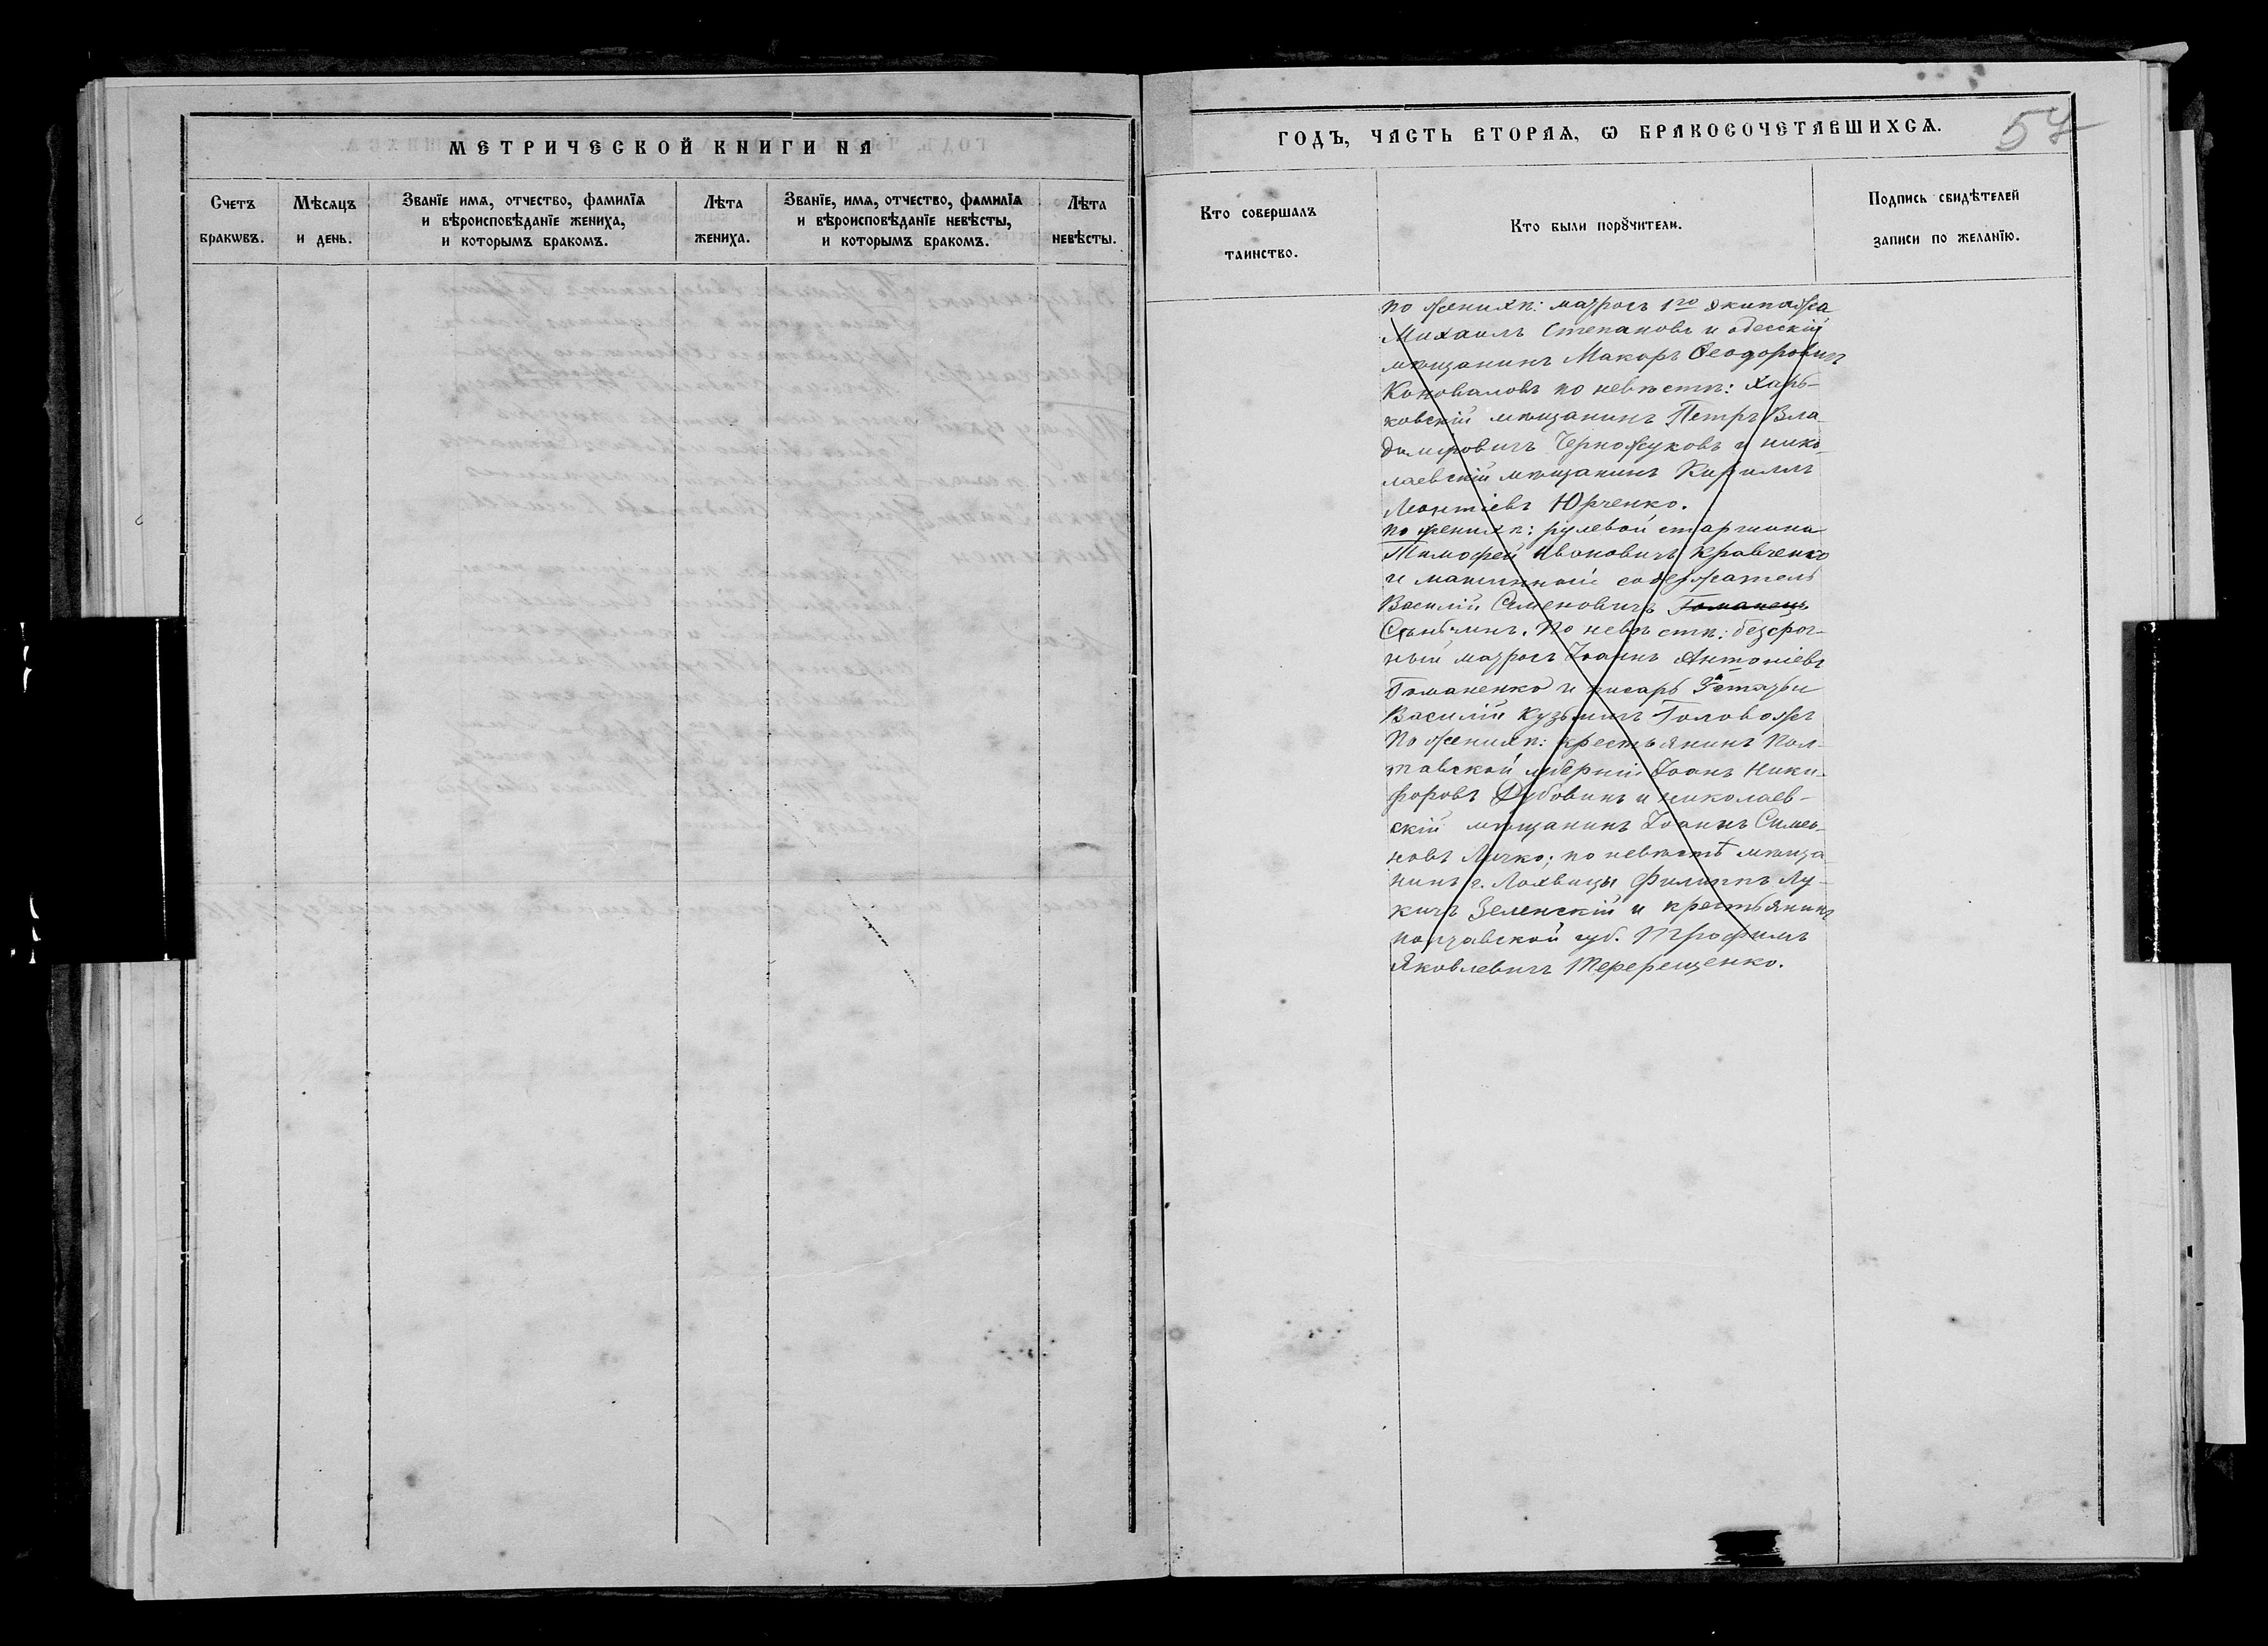 МЕТРИЧЕСКОЙ КНИГИ НА
Счетъ браковъ.
Мѣсяцъ и день.
Званїе имя, отчество, фамилїя и вѣроисповѣданїе жениха, и которымъ бракомъ.
Лѣта жениха.
Званїе, имя, отчество, фамилїя и вѣроисповѣданїе невѣсты, и которымъ бракомъ.
Лѣта невѣсты.
ГОДЪ, ЧАСТЬ ВТОРАЯ, Ѡ БРАКОСОЧЕТАВШИХСЯ.
57
Кто совершалъ таинство.
Кто были порꙋчители.
Подпись свидѣтелей записи по желанїю.
по женихѣ: матросъ 1го экипажа
Михаилъ Степановъ и одесскій
мѣщанинъ Макаръ Ѳеодоровичъ
Коноваловъ по невѣстѣ: харь-
ковскій мѣщанинъ Петръ Вла-
димировичъ Черножуковъ и нико-
лаевскій мѣщанинъ Кириллъ
Леонтіевъ Юрченко.
по женихѣ: рулевой старшина
Тимофей Ивановичъ Кравченко
и машинный содержатель
Василій Семеновичъ
по невѣстѣ: безсроч-
ный матросъ Іоаннъ Антоніевъ
Гоманенко и писарь
Василій Кузьмичъ
По женихѣ: крестьянинъ Пол-
тавской губерніи Іоанъ Ники-
форовъ Дубовинъ и николаев-
скій мѣщанинъ Іоаннъ Симео-
новъ Личко; по невѣстѣ мѣща-
нинъ г. Лохвицы Филиппъ Лу-
кичъ Зеленскій и крестьянинъ
полтавской губ. Трофимъ
Яковлевичъ Теререщенко.